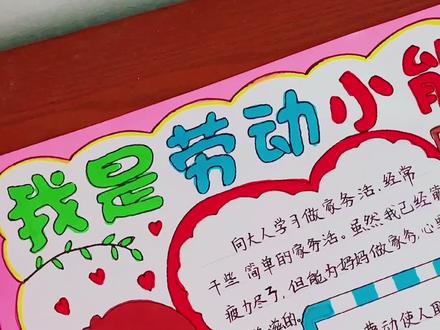 我是劳动小能
向大人学习做家务活,经常
干些简单的家务活。虽然我已经
疲力尽了,但能为妈妈做家务,心
滋滋的。
劳动使人